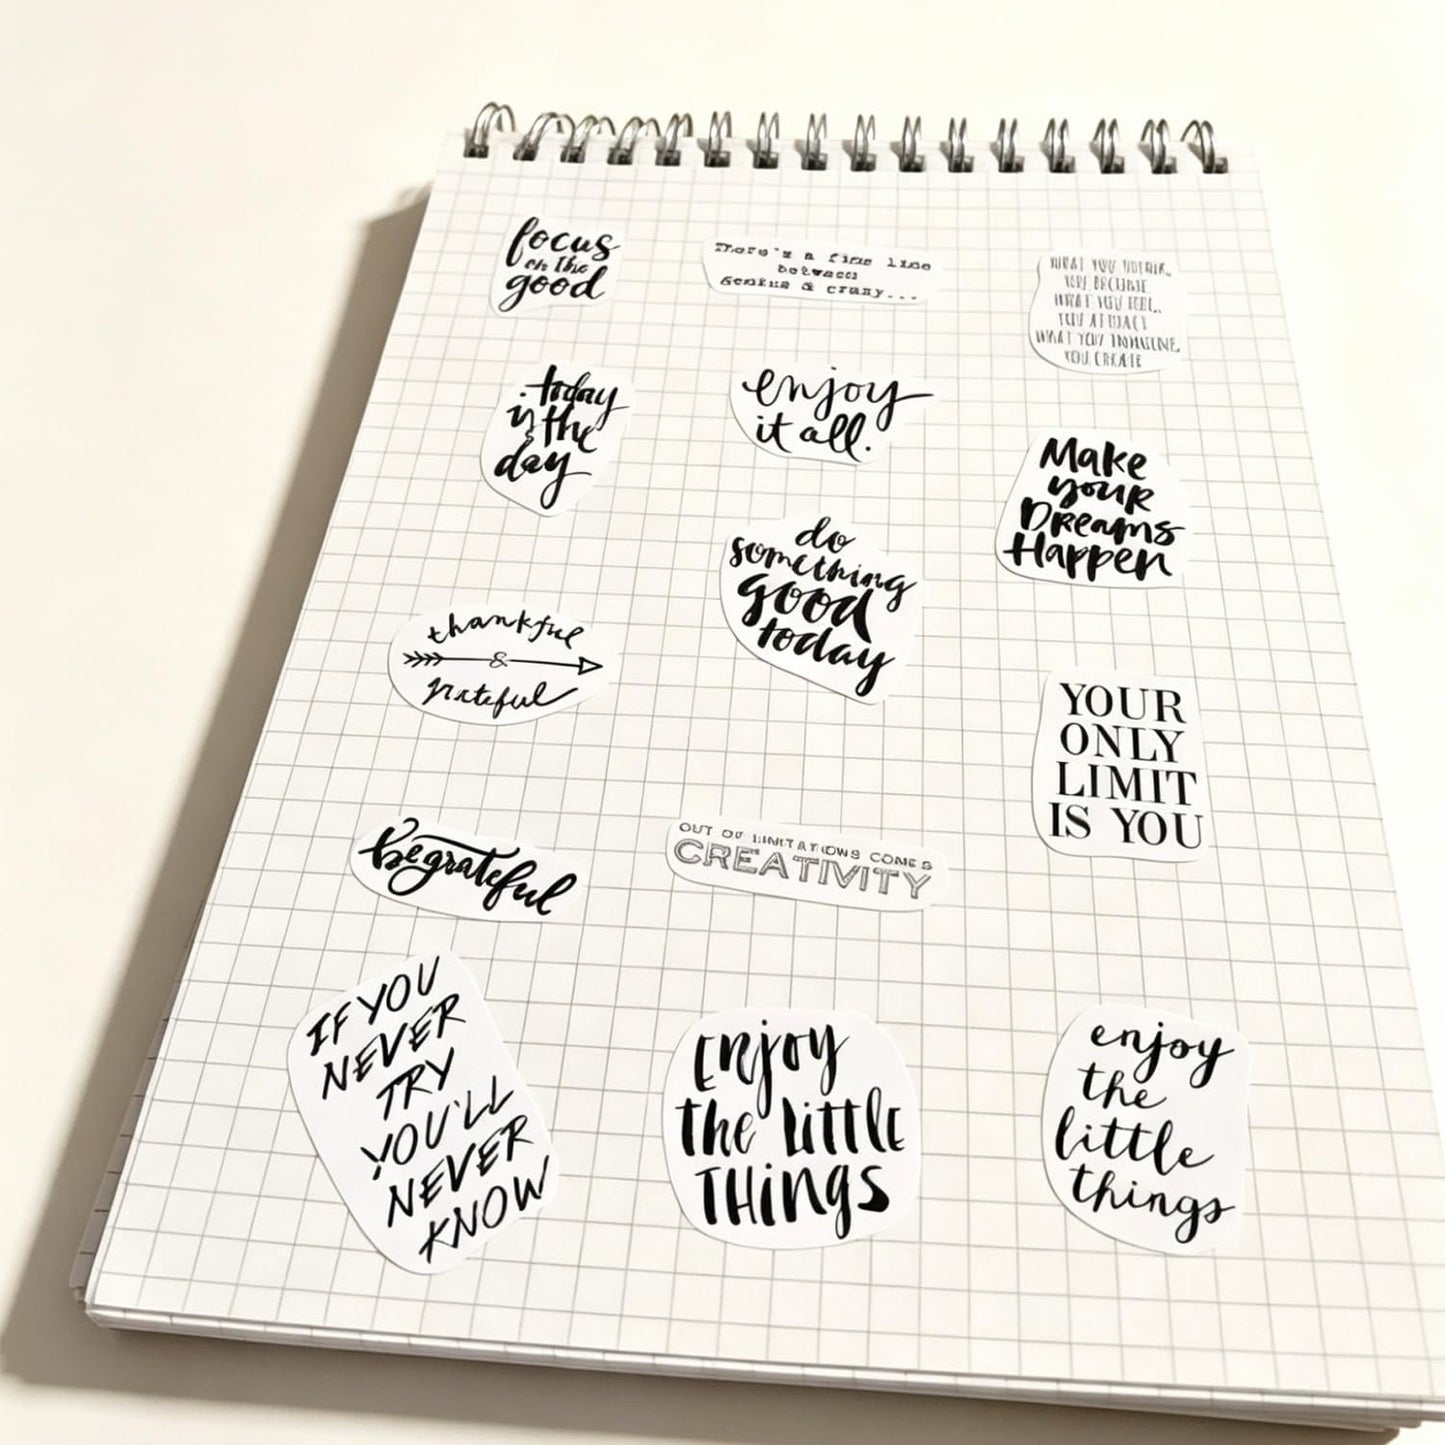 focus
on the
good
There's a fine line
between
genius & crazy...
WHAT YOU
YOU BECOME.
WHAT YOU FEEL,
YOU ATTRACT
WHAT YOU IMAGINE,
YOU CREATE
today
is the
day
enjoy
it all.
Make
your
Dreams
Happen
do
something
good
today
thankful
&
grateful
YOUR
ONLY
LIMIT
IS YOU
be grateful
OUT OF LIMITATIONS COMES
CREATIVITY
IF YOU
NEVER
TRY
YOU'LL
NEVER
KNOW
Enjoy
the little
THings
enjoy
the
little
things